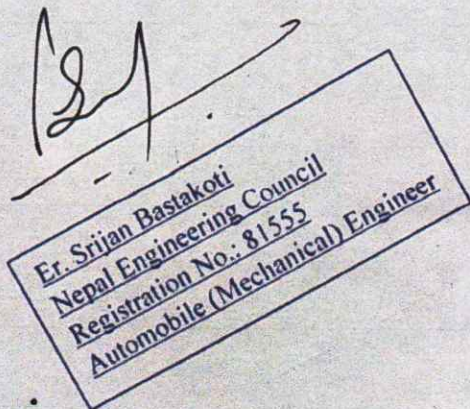 Er. Srijan Bastakoti
Nepal Engineering Council
Registration No.: 81555
Automobile (Mechanical) Engineer